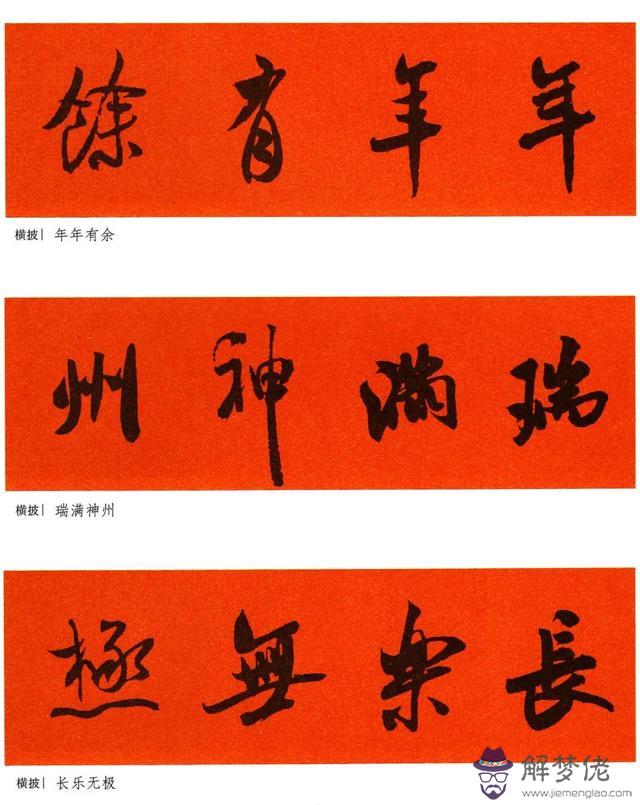 年年有餘
横披| 年年有余
瑞滿神州
横披| 瑞满神州
長樂無極
横披| 长乐无极
解梦佬
www.jiemenglao.com